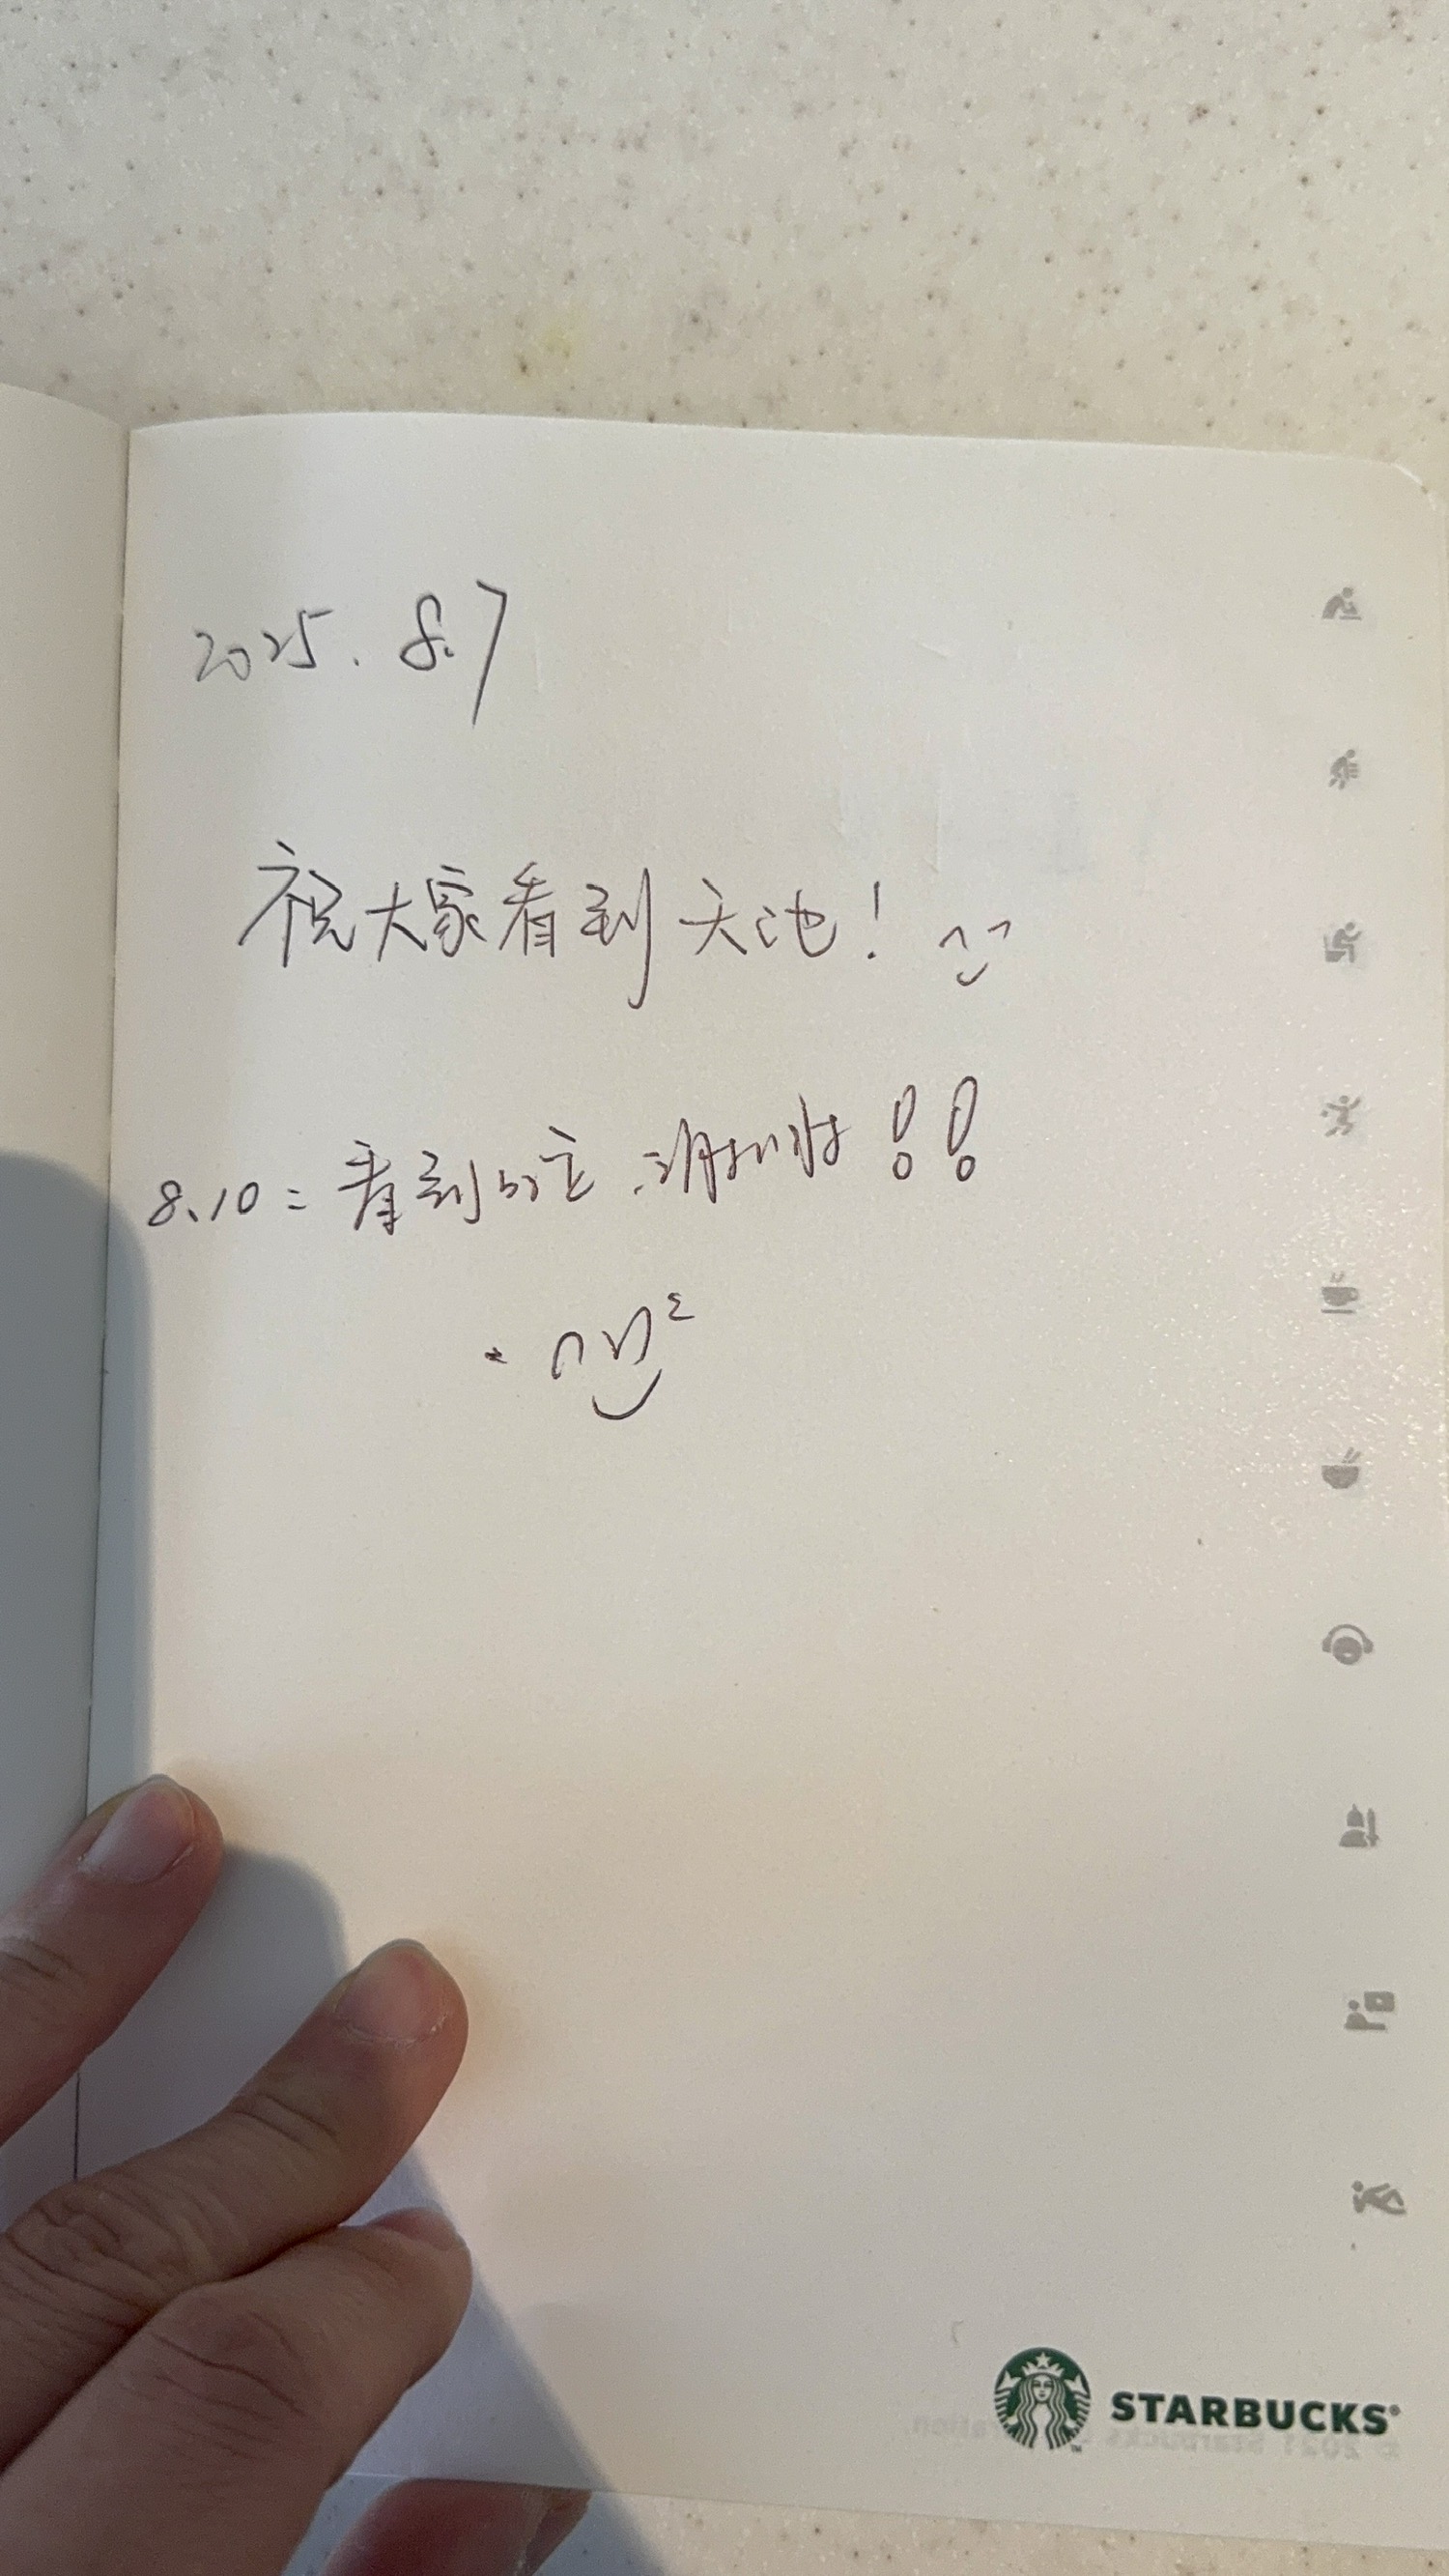 2025.8.7
祝大家看到天池！
8.10：看到啦，谢谢！！
STARBUCKS